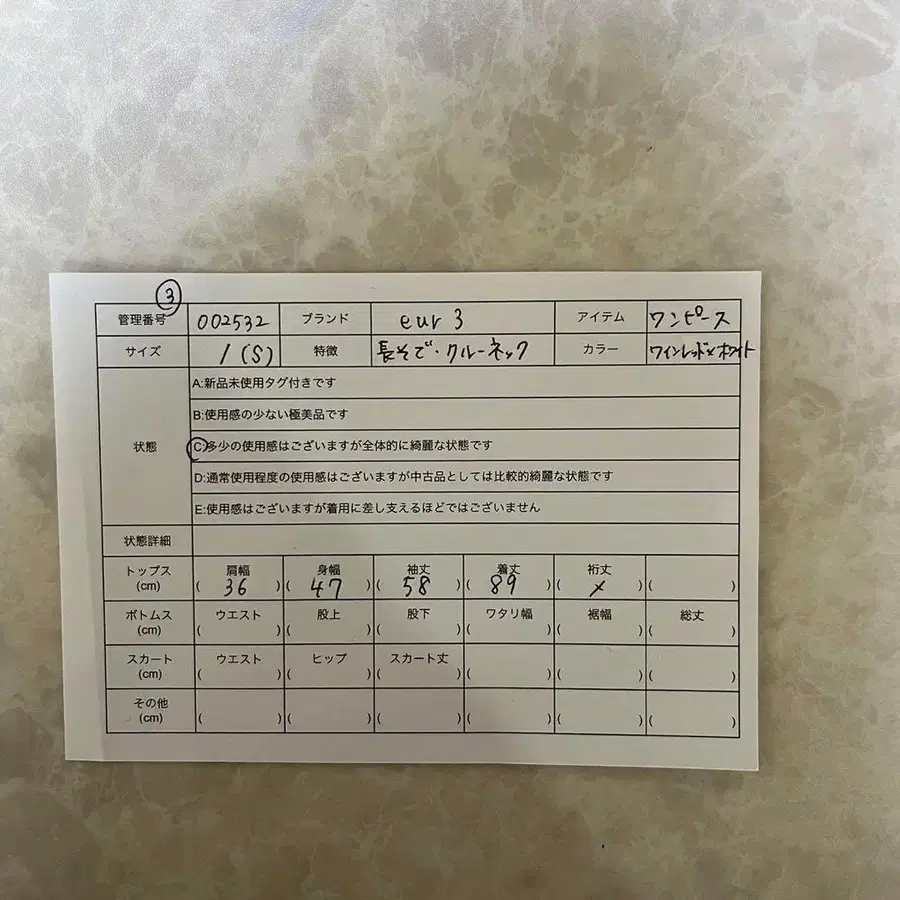 ③
管理番号 002532 ブランド eur 3 アイテム ワンピース
サイズ 1(S) 特徴 長そで・クルーネック カラー ワインレッド×ホワイト
状態
A:新品未使用タグ付きです
B:使用感の少ない極美品です
C:多少の使用感はございますが全体的に綺麗な状態です
D:通常使用程度の使用感はございますが中古品としては比較的綺麗な状態です
E:使用感はございますが着用に差し支えるほどではございません
状態詳細
トップス 肩幅 身幅 袖丈 着丈 裄丈
(cm) (36) (47) (58) (89) (×) ( )
ボトムス ウエスト 股上 股下 ワタリ幅 裾幅 総丈
(cm) ( ) ( ) ( ) ( ) ( ) ( )
スカート ウエスト ヒップ スカート丈
(cm) ( ) ( ) ( ) ( ) ( ) ( )
その他
(cm) ( ) ( ) ( ) ( ) ( ) ( )